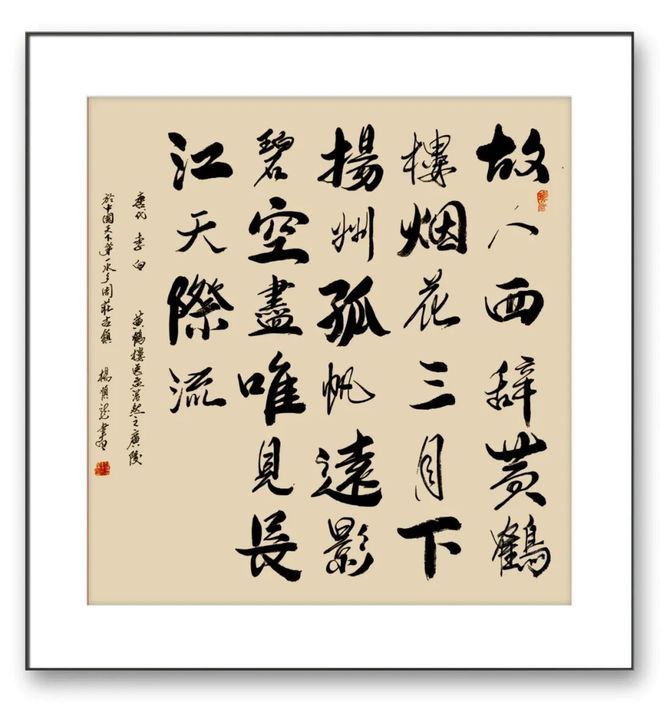 故人西辞黄鶴
樓烟花三月下
揚州孤帆遠影
碧空盡唯見長
江天際流
唐代 李白 黄鶴樓送孟浩然之廣陵
於中國天下第一水乡周莊古鎮 楊